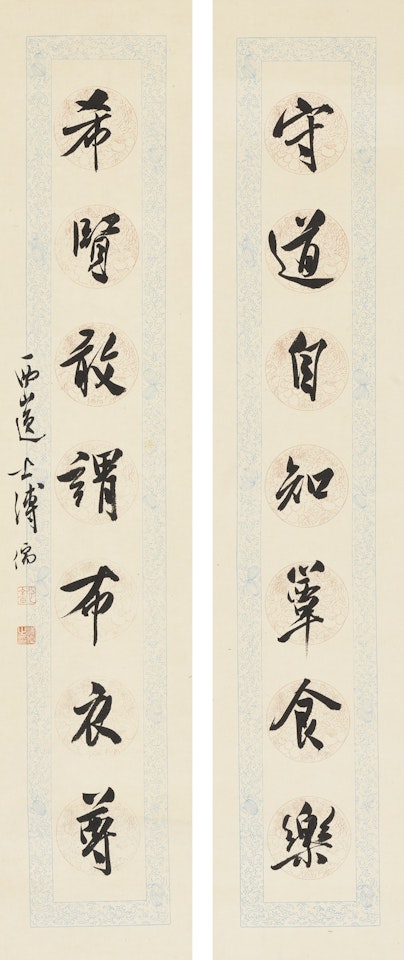 守道自知簞食樂
希賢敢謂布衣尊
西山逸士溥儒